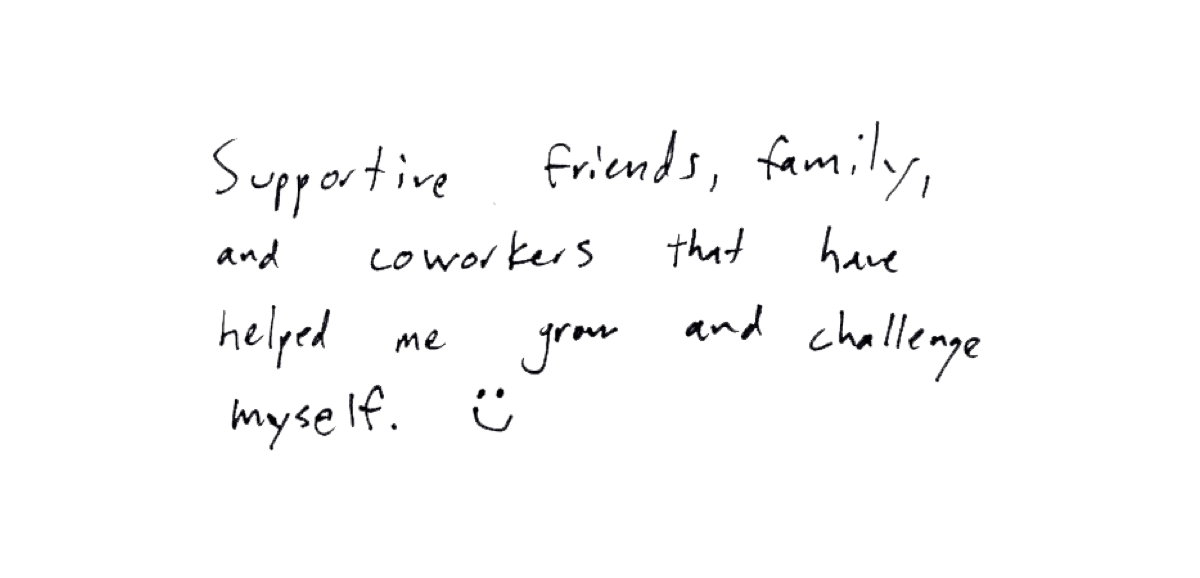 Supportive friends, family,
and coworkers that have
helped me grow and challenge
myself. :)